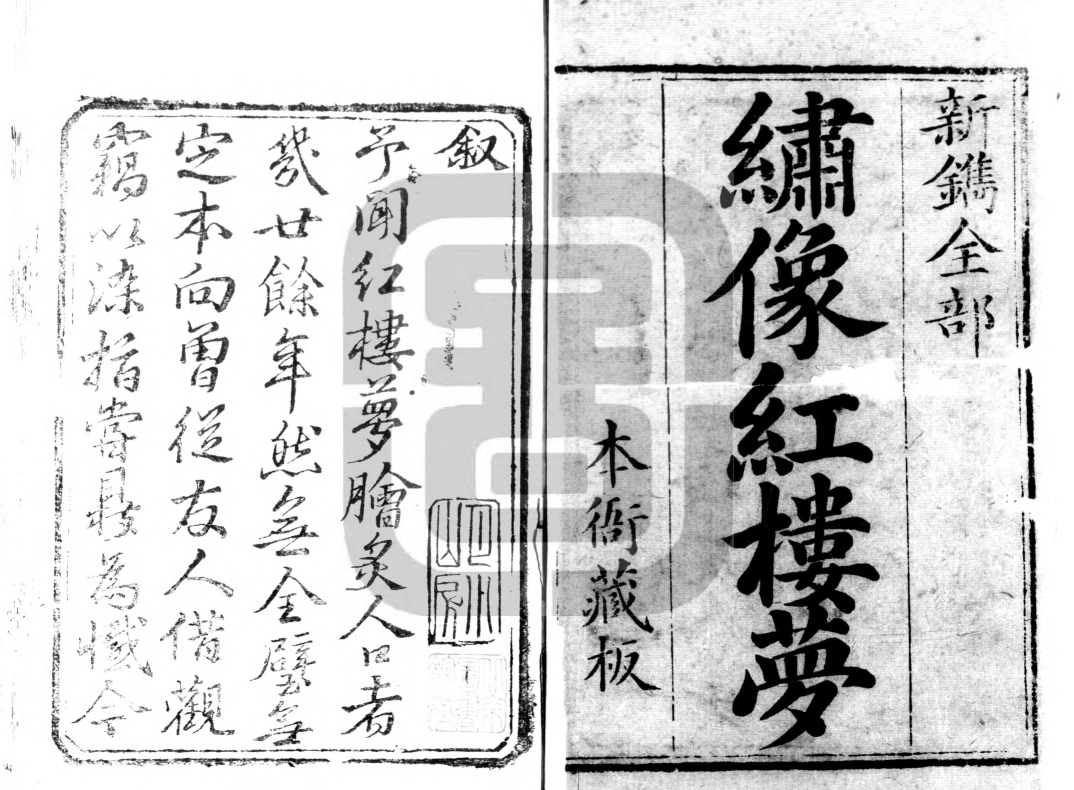 新鐫全部
繡像紅樓夢
本衙藏板
叙
予聞紅樓夢膾炙人口者
幾廿餘年然無全璧無
定本向曾從友人借觀
竊以染指嘗鼎為憾今